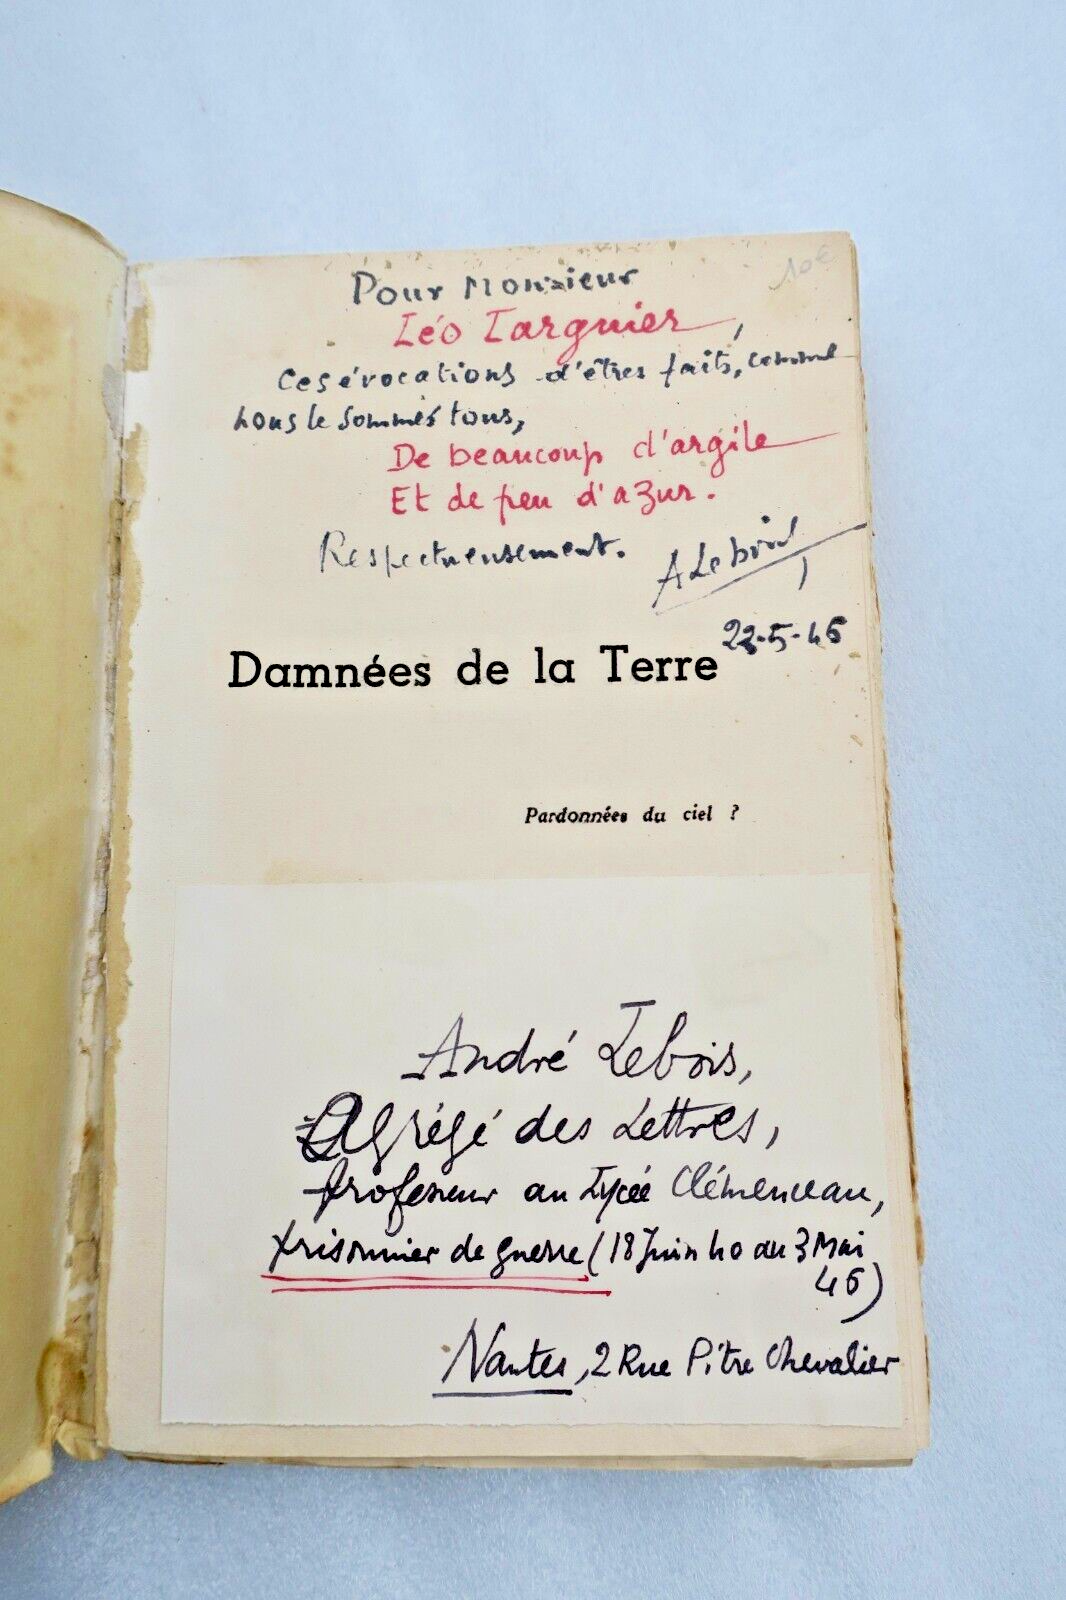 10€
Pour Monsieur
Léo Larguier,
Ces évocations d'êtres faits, comme
nous le sommes tous,
De beaucoup d'argile
Et de peu d'azur.
Respectueusement.
A Lebois
22-5-46
Damnées de la Terre
Pardonnées du ciel ?
André Lebois,
Agrégé des Lettres,
professeur au Lycée Clémenceau,
prisonnier de guerre (18 Juin 40 au 3 Mai
45)
Nantes, 2 Rue Pitre Chevalier